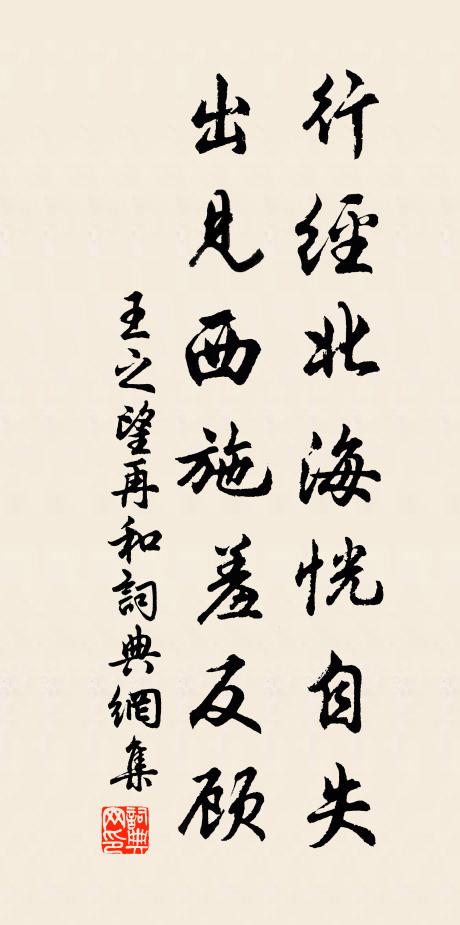 行經北海恍自失
出見西施羞反顧
王之望再和詞典網集
詞典網印